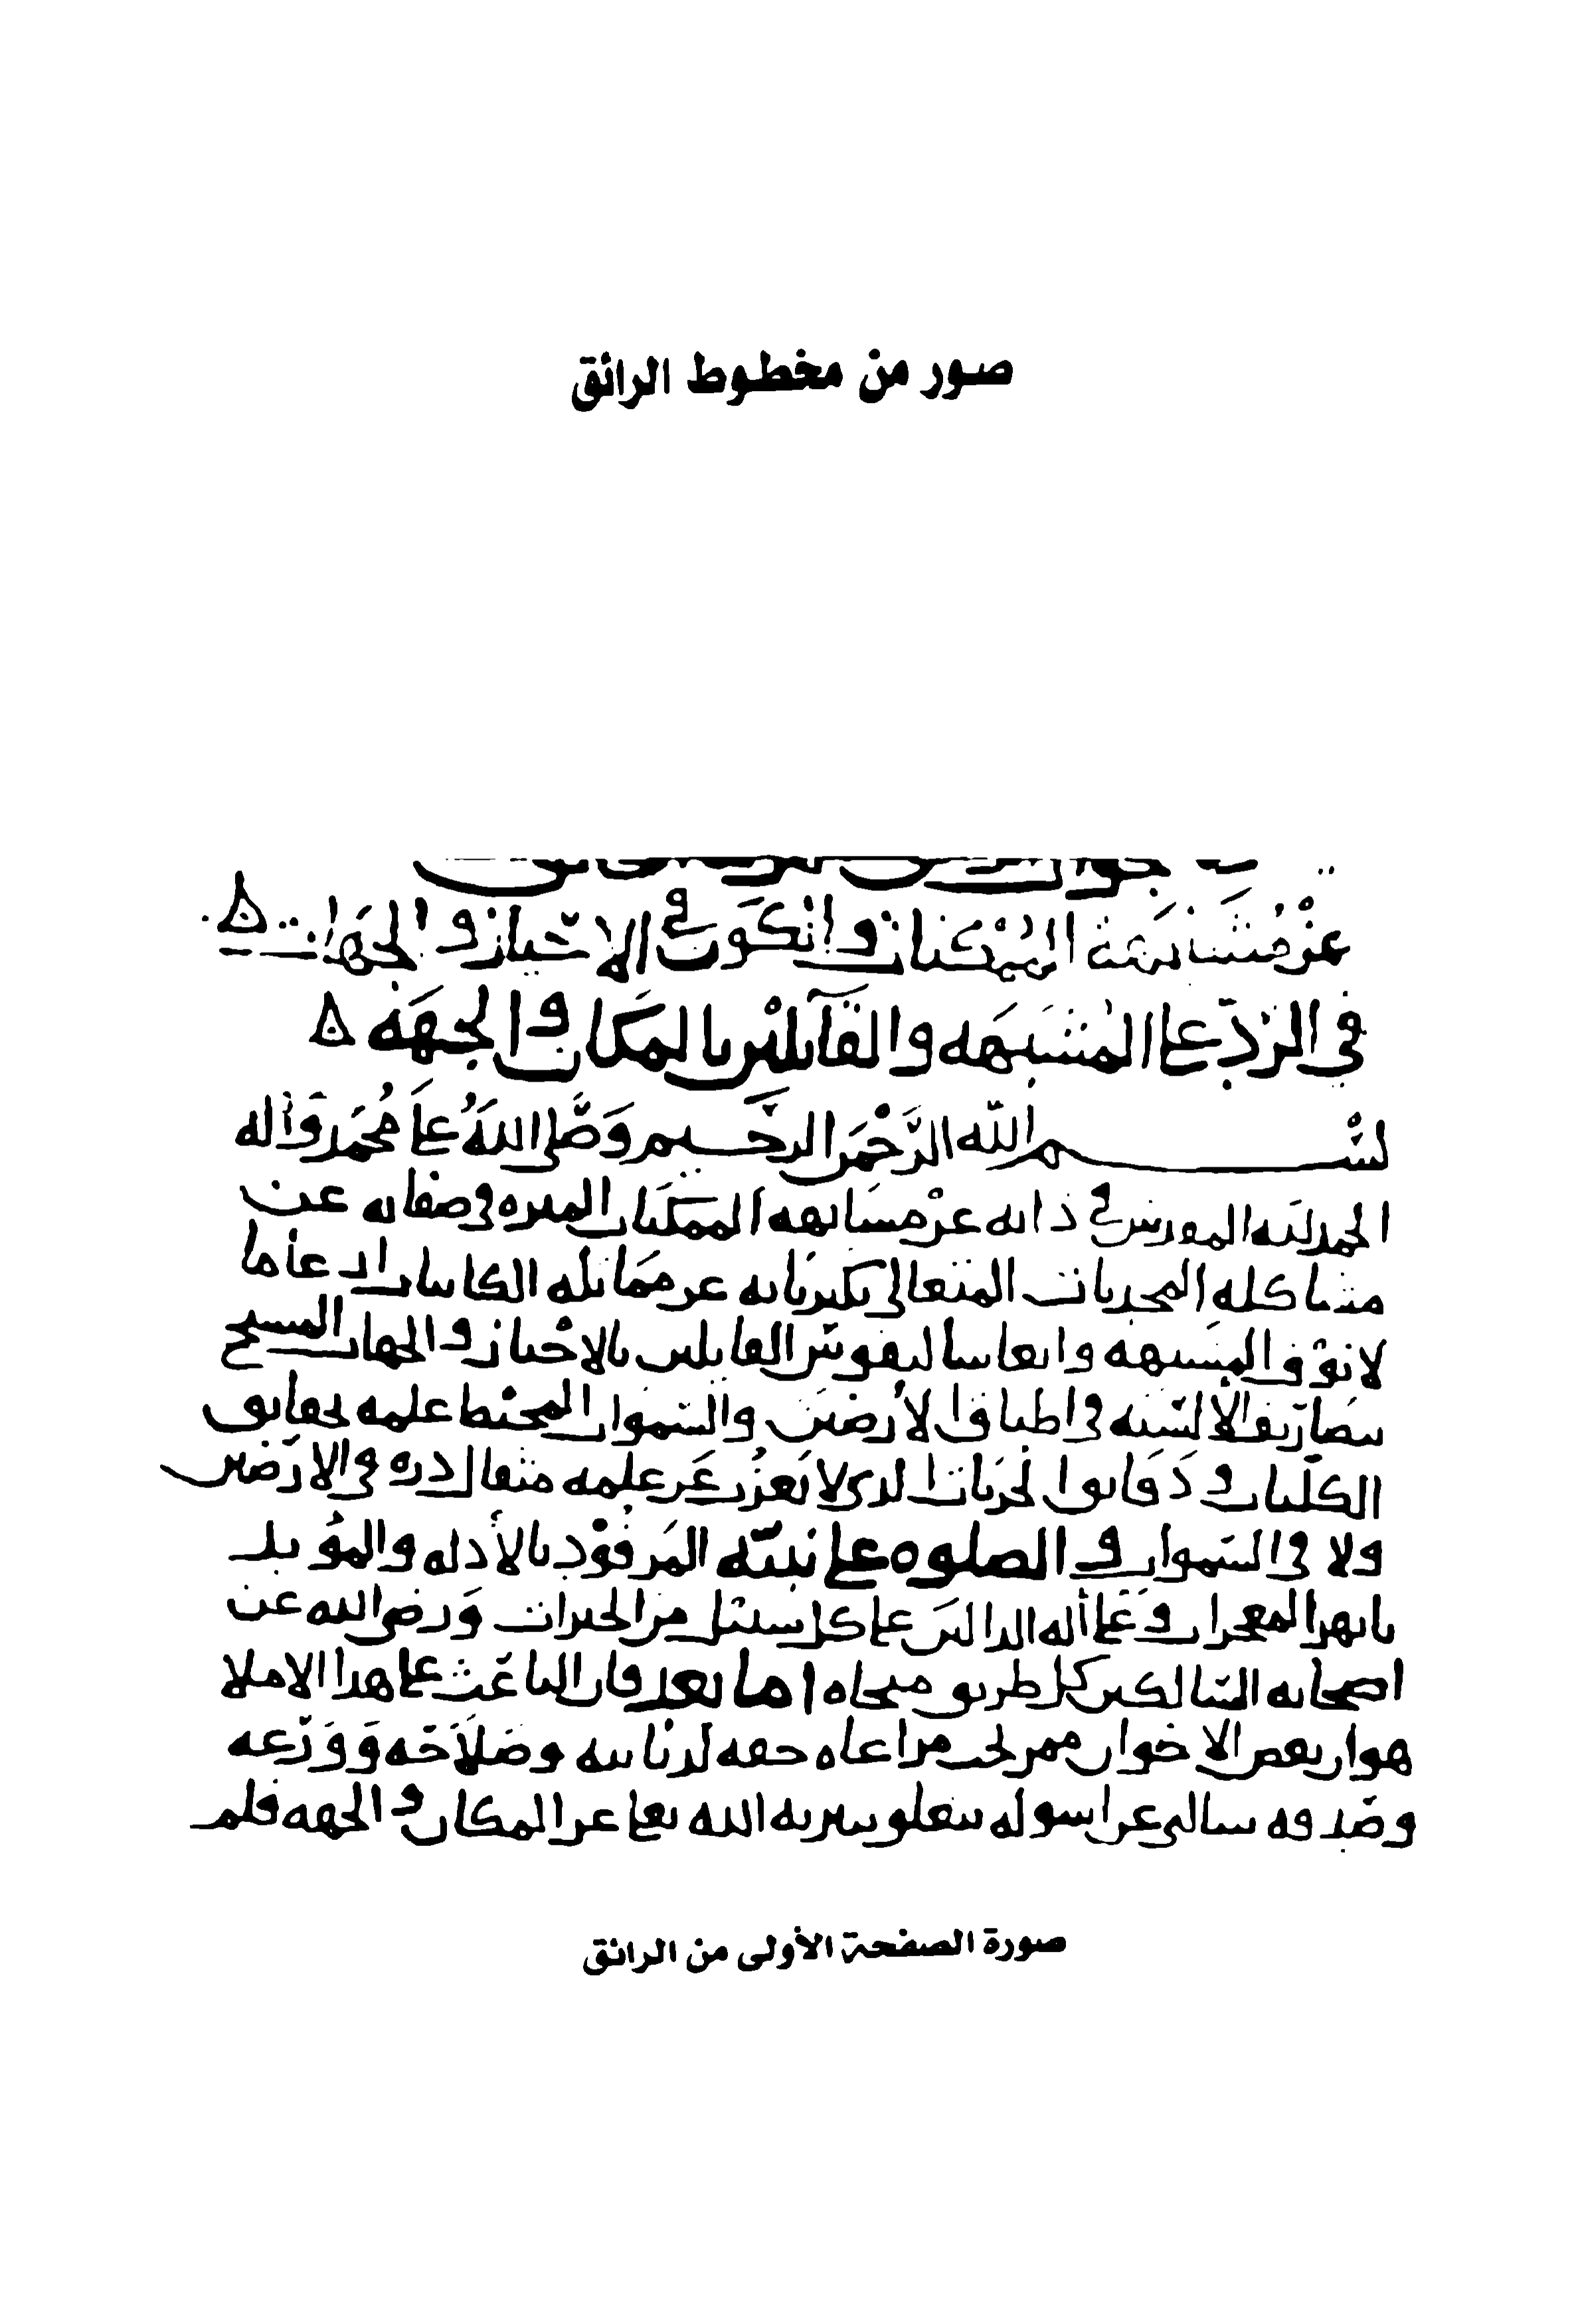 صور من مخطوط الرائق
عن مشابهة الممكنات والكون في الاحياز والجهات
في الرد على المشبهه والقايلين بالمكان والجهه
بسم الله الرحمن الرحيم وصلى الله على محمد واله
الحمد لله المقدس في ذاته عن مشابهه الممكنات المنزه في صفاته عن
مشاكله المحدثات المتعالي بكبريايه عن مماثله الكاينات
لانوف المشبهه واتعاسا لنفوس القايلين بالاحياز والجهات المسبح
بتصاريف الالسنه في اطباق الارضين والسموات المحيط علمه بحقايق
الكليات ودقايق الجزيات الذي لا يعزب عن علمه مثقال ذره في الارضين
ولا في السموات والصلوه على نبيه المرفود بالأدله والمؤيد
بابهر المعجزات وعلى أله الدالين على كل سبيل من الخيرات ورضي الله عن
اصحابه السالكين كل طريق منجاه اما بعد فان الباعث على هذا الاملا
هو ان بعض الاخوان ممن تجب مراعاه حقه لديانته وصلاحه وورعه
وصدقه سالني عن اسوله تتعلق بتنزيه الله تعالى عن المكان والجهه فلم
صورة الصفحة الأولى من الرائق